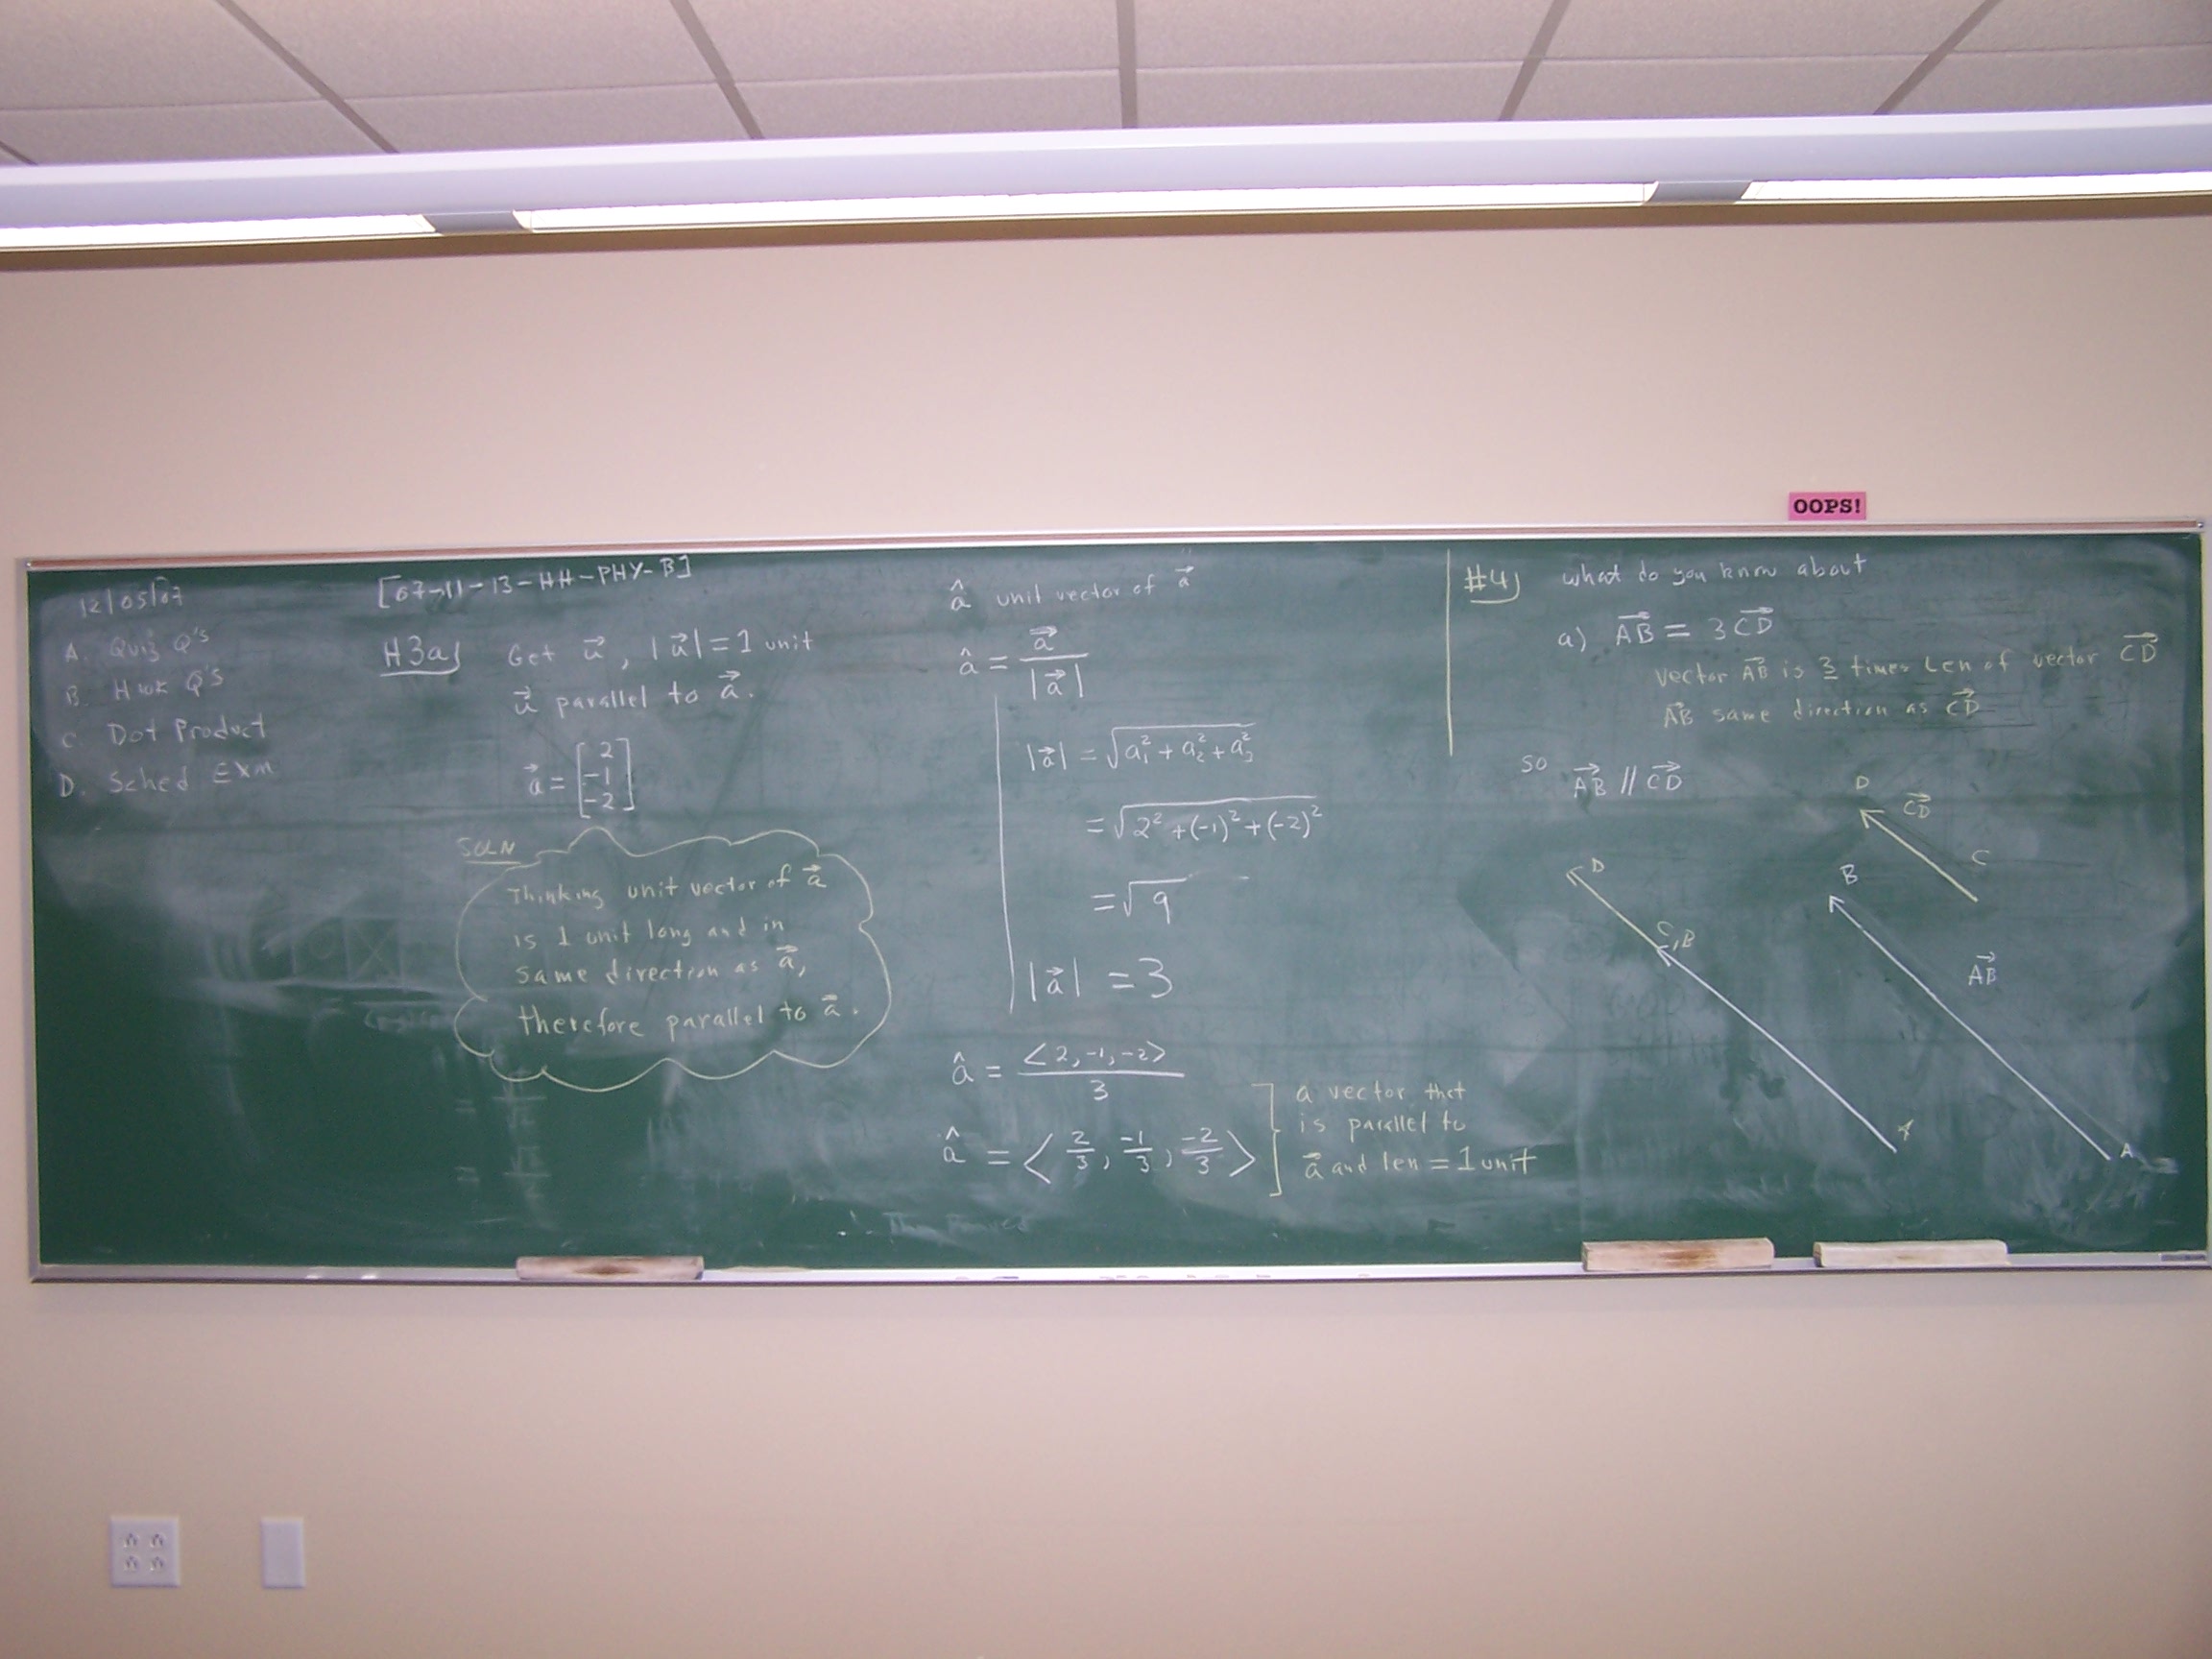 OOPS!
12/05/07
A. Quiz Q's
B. Hwk Q's
C. Dot Product
D. Sched Exm
[07-11-13-HH-PHY-B]
H3a) Get u⃗, |u⃗| = 1 unit
u⃗ parallel to a⃗.
a⃗ = [2
-1
-2]
SOLN
Thinking unit vector of a⃗
is 1 unit long and in
same direction as a⃗,
therefore parallel to a⃗.
â unit vector of a⃗
â = a⃗ / |a⃗|
|a⃗| = √(a₁² + a₂² + a₃²)
= √(2² + (-1)² + (-2)²)
= √9
|a⃗| = 3
â = <2, -1, -2> / 3
â = < 2/3, -1/3, -2/3 >
a vector that
is parallel to
a⃗ and len = 1 unit
#4) what do you know about
a) AB⃗ = 3CD⃗
Vector AB⃗ is 3 times Len of vector CD⃗
AB⃗ same direction as CD⃗
so AB⃗ // CD⃗
D
CD⃗
C
B
AB⃗
A
D
C, B
A